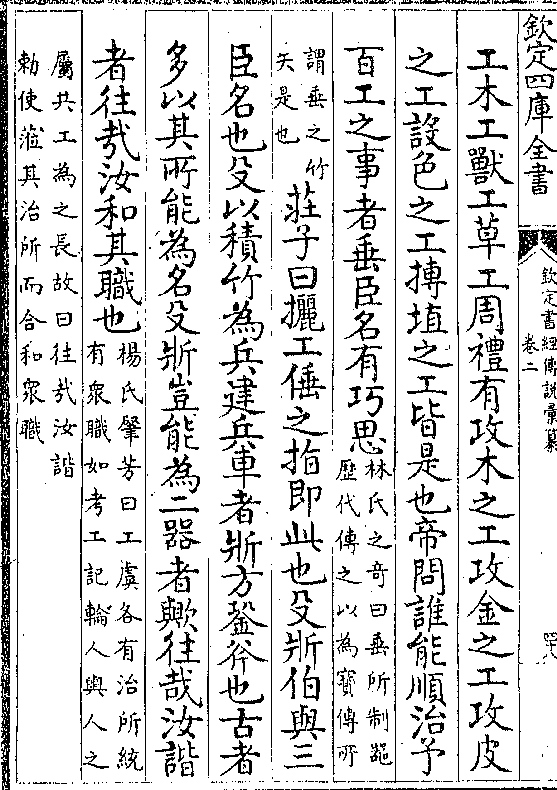 欽定四庫全書
欽定書經傳說彙纂
卷二
工木工獸工草工周禮有攻木之工攻金之工攻皮
之工設色之工摶埴之工皆是也帝問誰能順治予
百工之事者垂臣名有巧思
林氏之奇曰垂所制器
歷代傳之以為寶傳所
謂垂之竹
矢是也
莊子曰攦工倕之指即此也殳斨伯與三
臣名也殳以積竹為兵建兵車者斨方銎斧也古者
多以其所能為名殳斨豈能為二器者歟往哉汝諧
者往哉汝和其職也
楊氏肇芳曰工虞各有治所統
有眾職如考工記輪人輿人之
屬共工為之長故曰往哉汝諧
勅使蒞其治所而合和眾職